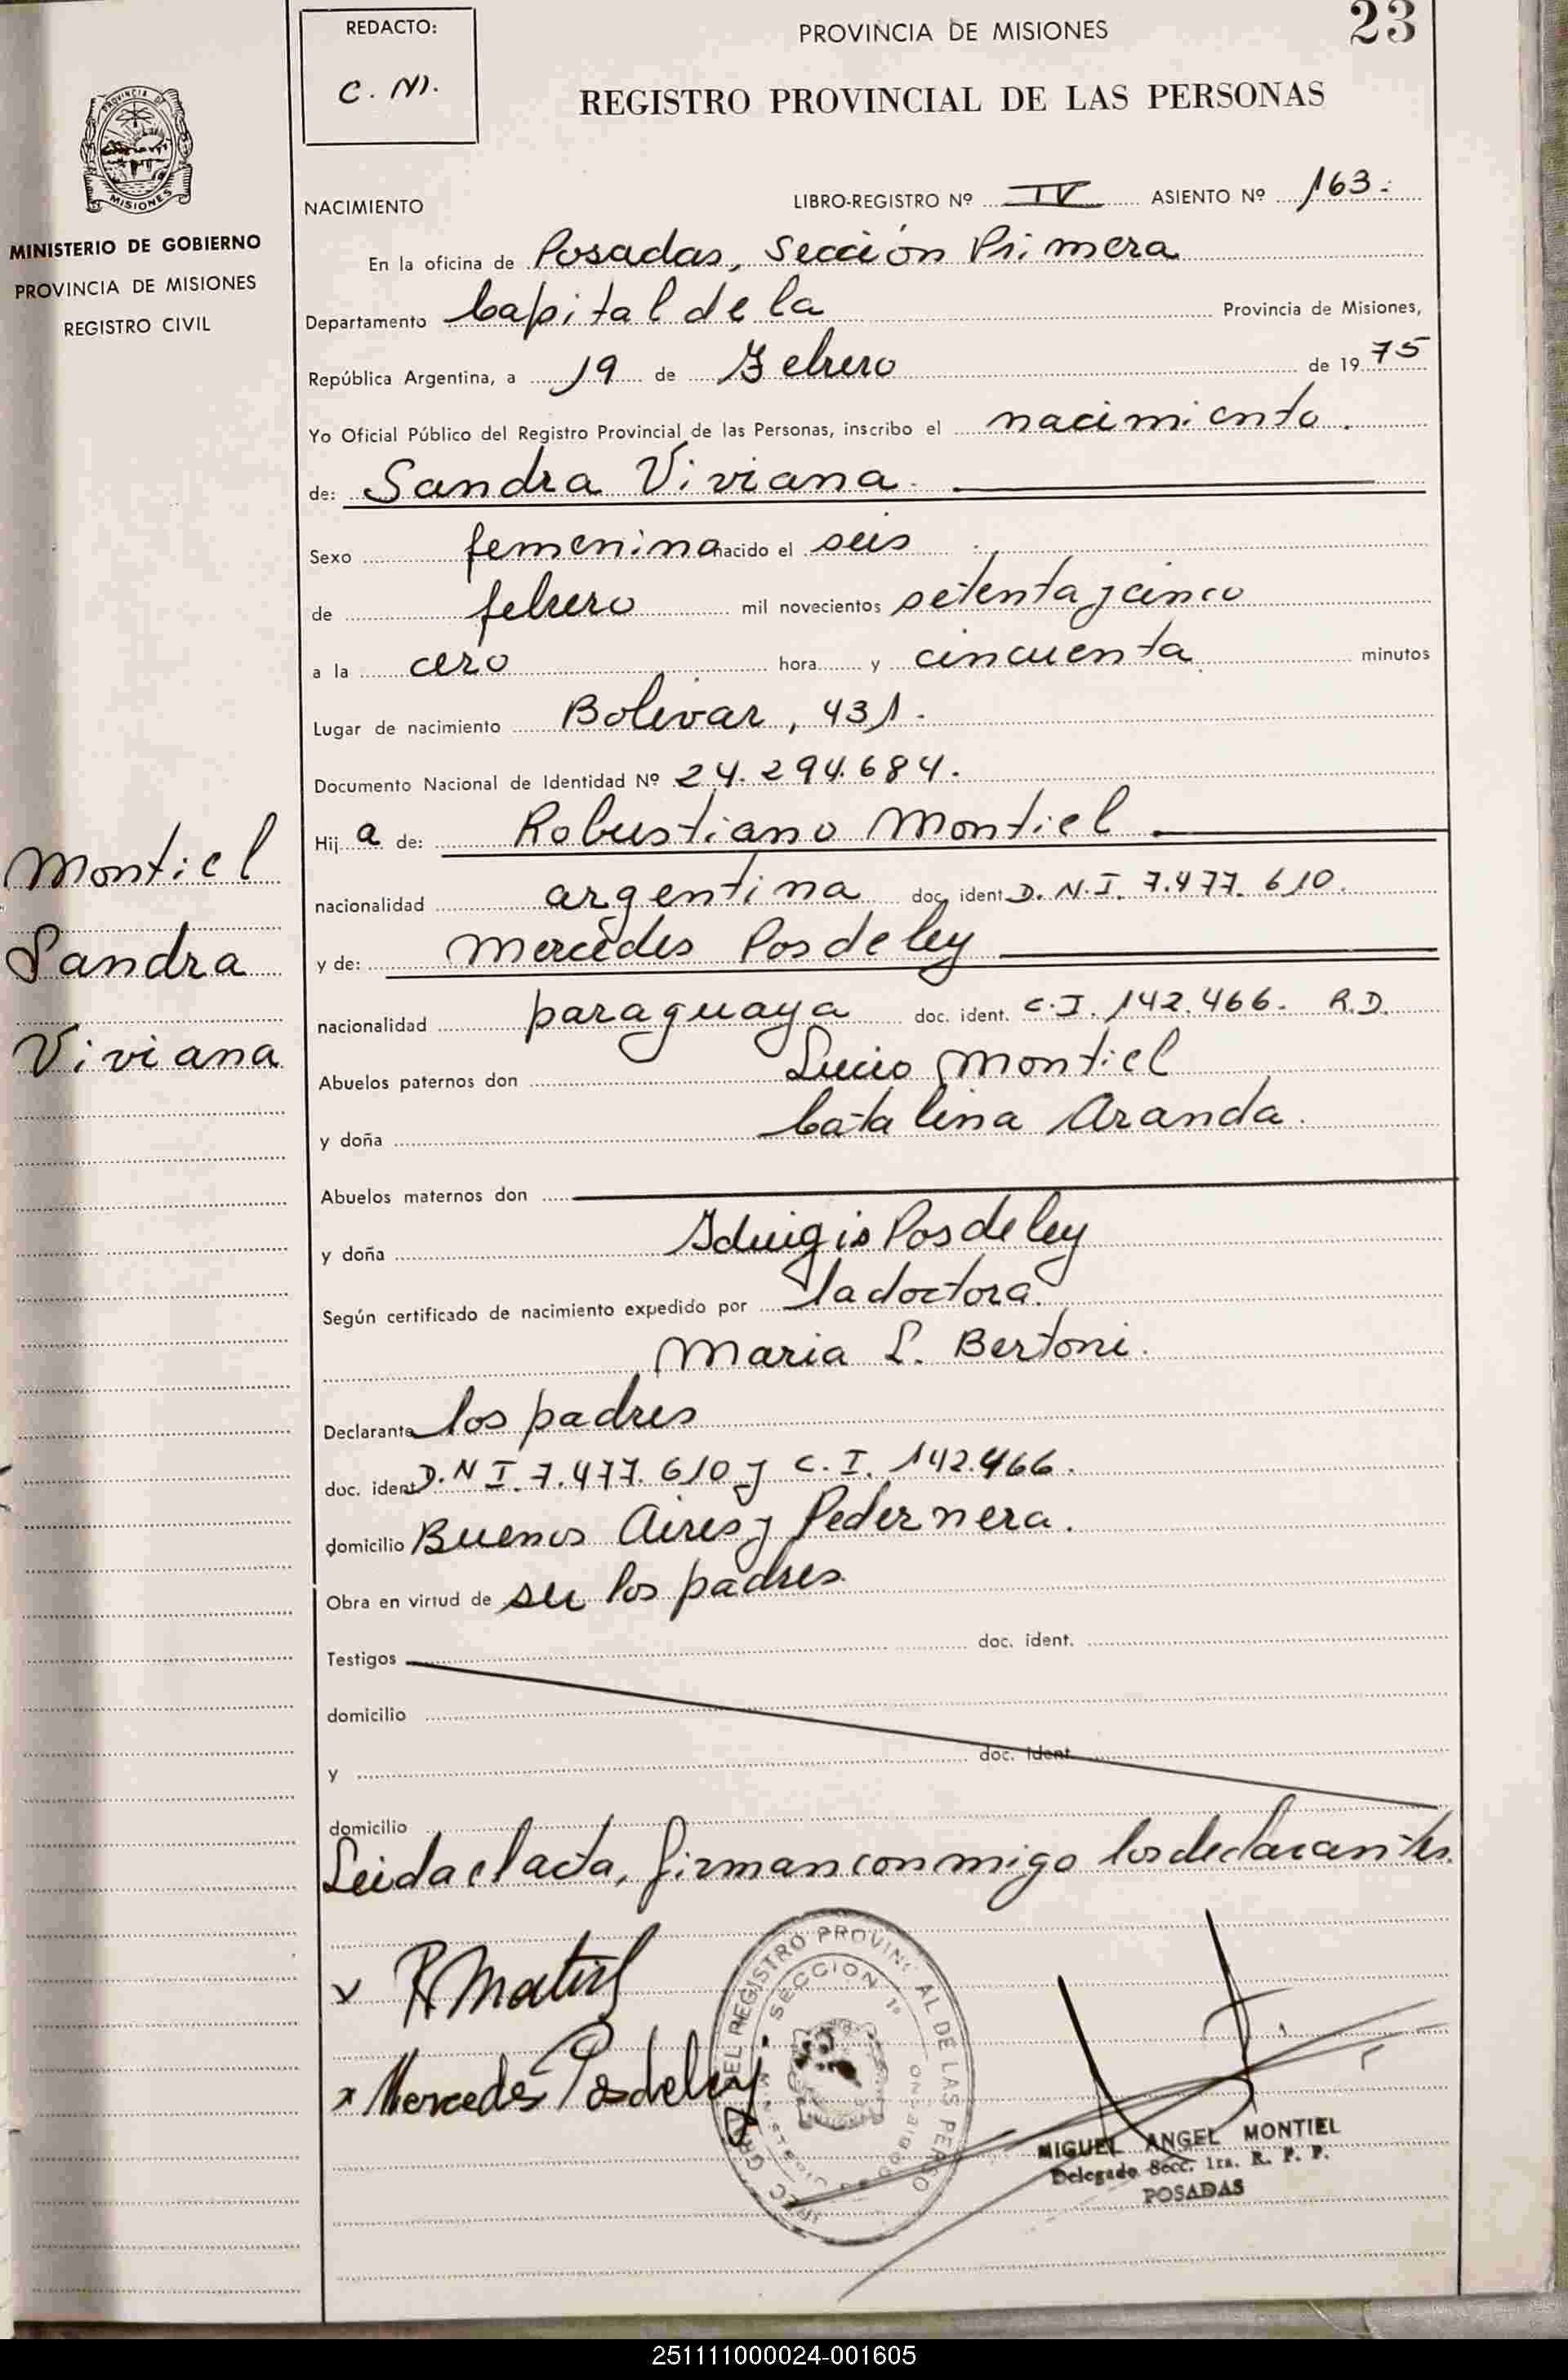 REDACTO:
C. M.
PROVINCIA DE MISIONES
23
REGISTRO PROVINCIAL DE LAS PERSONAS
MISIONES
MINISTERIO DE GOBIERNO
PROVINCIA DE MISIONES
REGISTRO CIVIL
NACIMIENTO LIBRO-REGISTRO Nº IV ASIENTO Nº 163.
En la oficina de Posadas, Sección Primera
Departamento Capital de la Provincia de Misiones,
República Argentina, a 19 de Febrero de 19 75
Yo Oficial Público del Registro Provincial de las Personas, inscribo el nacimiento.
de: Sandra Viviana.
Sexo femenino nacido el seis
de febrero mil novecientos setenta y cinco
a la cero hora y cincuenta minutos
Lugar de nacimiento Bolivar, 431.
Documento Nacional de Identidad Nº 24.294.684.
Hij a de: Robustiano Montiel
nacionalidad argentina doc. ident. D.N.I. 7.477.610.
y de: Mercedes Posdeley
nacionalidad paraguaya doc. ident. C.I. 142.466. R.D.
Abuelos paternos don Lucio Montiel
y doña Catalina Aranda.
Abuelos maternos don
y doña Eduigis Posdeley
Según certificado de nacimiento expedido por la doctora
Maria L. Bertoni.
Declarante los padres
doc. ident. D.N I. 7.477.610 y C.I. 142.466.
domicilio Buenos Aires y Pedernera.
Obra en virtud de ser los padres.
Testigos doc. ident.
domicilio
y doc. ident.
domicilio
Leida el acta, firman conmigo los declarantes.
Montiel
Sandra
Viviana
x Mercedes Posdeley
REGISTRO PROVINCIAL DE LAS PERSO
SECCION 1ª
MIGUEL ANGEL MONTIEL
Delegado Secc. 1ra. R. P. P.
POSADAS
251111000024-001605